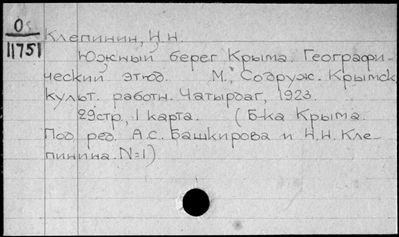 О
11751
Клепинин, Н.Н.
Южный берег Крыма. Географи-
ческий этюд. М., Содруж. Крымск
культ. работн. Чатырдаг, 1923.
29стр, 1 карта. (Б-ка Крыма.
Под ред. А.С. Башкирова и Н.Н. Кле-
пинина. N=1)